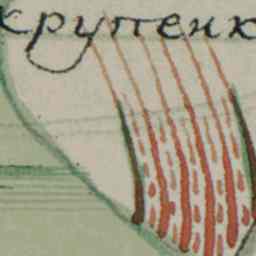 крупенк